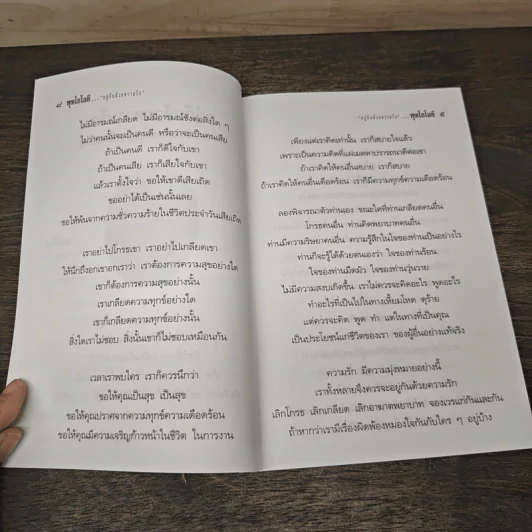 ๘ พุทโธโลยี..."อยู่กันด้วยความรัก"
ไม่มีอารมณ์เกลียด ไม่มีอารมณ์ชังต่อสิ่งใด ๆ
ไม่ว่าคนนั้นจะเป็นคนดี หรือว่าจะเป็นคนเสีย
ถ้าเป็นคนดี เราก็ดีใจกับเขา
ถ้าเป็นคนเสีย เราก็เสียใจกับเขา
แล้วเราตั้งใจว่า ขอให้เขาดีเสียเถิด
ขออย่าได้เป็นเช่นนั้นเลย
ขอให้พ้นจากความชั่วความร้ายในชีวิตประจำวันเสียเถิด
เราอย่าไปโกรธเขา เราอย่าไปเกลียดเขา
ให้นึกถึงอกเขาอกเราว่า เราต้องการความสุขอย่างใด
เขาก็ต้องการความสุขอย่างนั้น
เราเกลียดความทุกข์อย่างใด
เขาก็เกลียดความทุกข์อย่างนั้น
สิ่งใดเราไม่ชอบ สิ่งนั้นเขาก็ไม่ชอบเหมือนกัน
เวลาเราพบใคร เราก็ควรนึกว่า
ขอให้คุณเป็นสุข เป็นสุข
ขอให้คุณปราศจากความทุกข์ความเดือดร้อน
ขอให้คุณมีความเจริญก้าวหน้าในชีวิต ในการงาน
"อยู่กันด้วยความรัก"...พุทโธโลยี ๙
เพียงแต่เราคิดเท่านั้น เราก็สบายใจแล้ว
เพราะเป็นความคิดที่แผ่เมตตาปรารถนาดีต่อเขา
ถ้าเราคิดให้คนอื่นสบาย เราก็สบาย
ถ้าเราคิดให้คนอื่นเดือดร้อน เราก็มีความทุกข์ความเดือดร้อน
ลองพิจารณาตัวท่านเอง ขณะใดที่ท่านเกลียดคนอื่น
โกรธคนอื่น ท่านคิดพยาบาทคนอื่น
ท่านมีความริษยาคนอื่น ความรู้สึกในใจของท่านเป็นอย่างไร
ท่านก็จะรู้ได้ด้วยตนเองว่า ใจของท่านร้อน
ใจของท่านมืดมัว ใจของท่านวุ่นวาย
ไม่มีความสงบเกิดขึ้น เราไม่ควรจะคิดอะไร พูดอะไร
ทำอะไรที่เป็นไปในทางเหี้ยมโหด ดุร้าย
แต่ควรจะคิด พูด ทำ แต่ในทางที่เป็นคุณ
เป็นประโยชน์แก่ชีวิตของเรา ของผู้อื่นอย่างแท้จริง
ความรัก มีความมุ่งหมายอย่างนี้
เราทั้งหลายจึงควรจะอยู่กันด้วยความรัก
เลิกโกรธ เลิกเกลียด เลิกอาฆาตพยาบาท จองเวรแก่กันและกัน
ถ้าหากว่าเรามีเรื่องผิดพ้องหมองใจกันกับใคร ๆ อยู่บ้าง